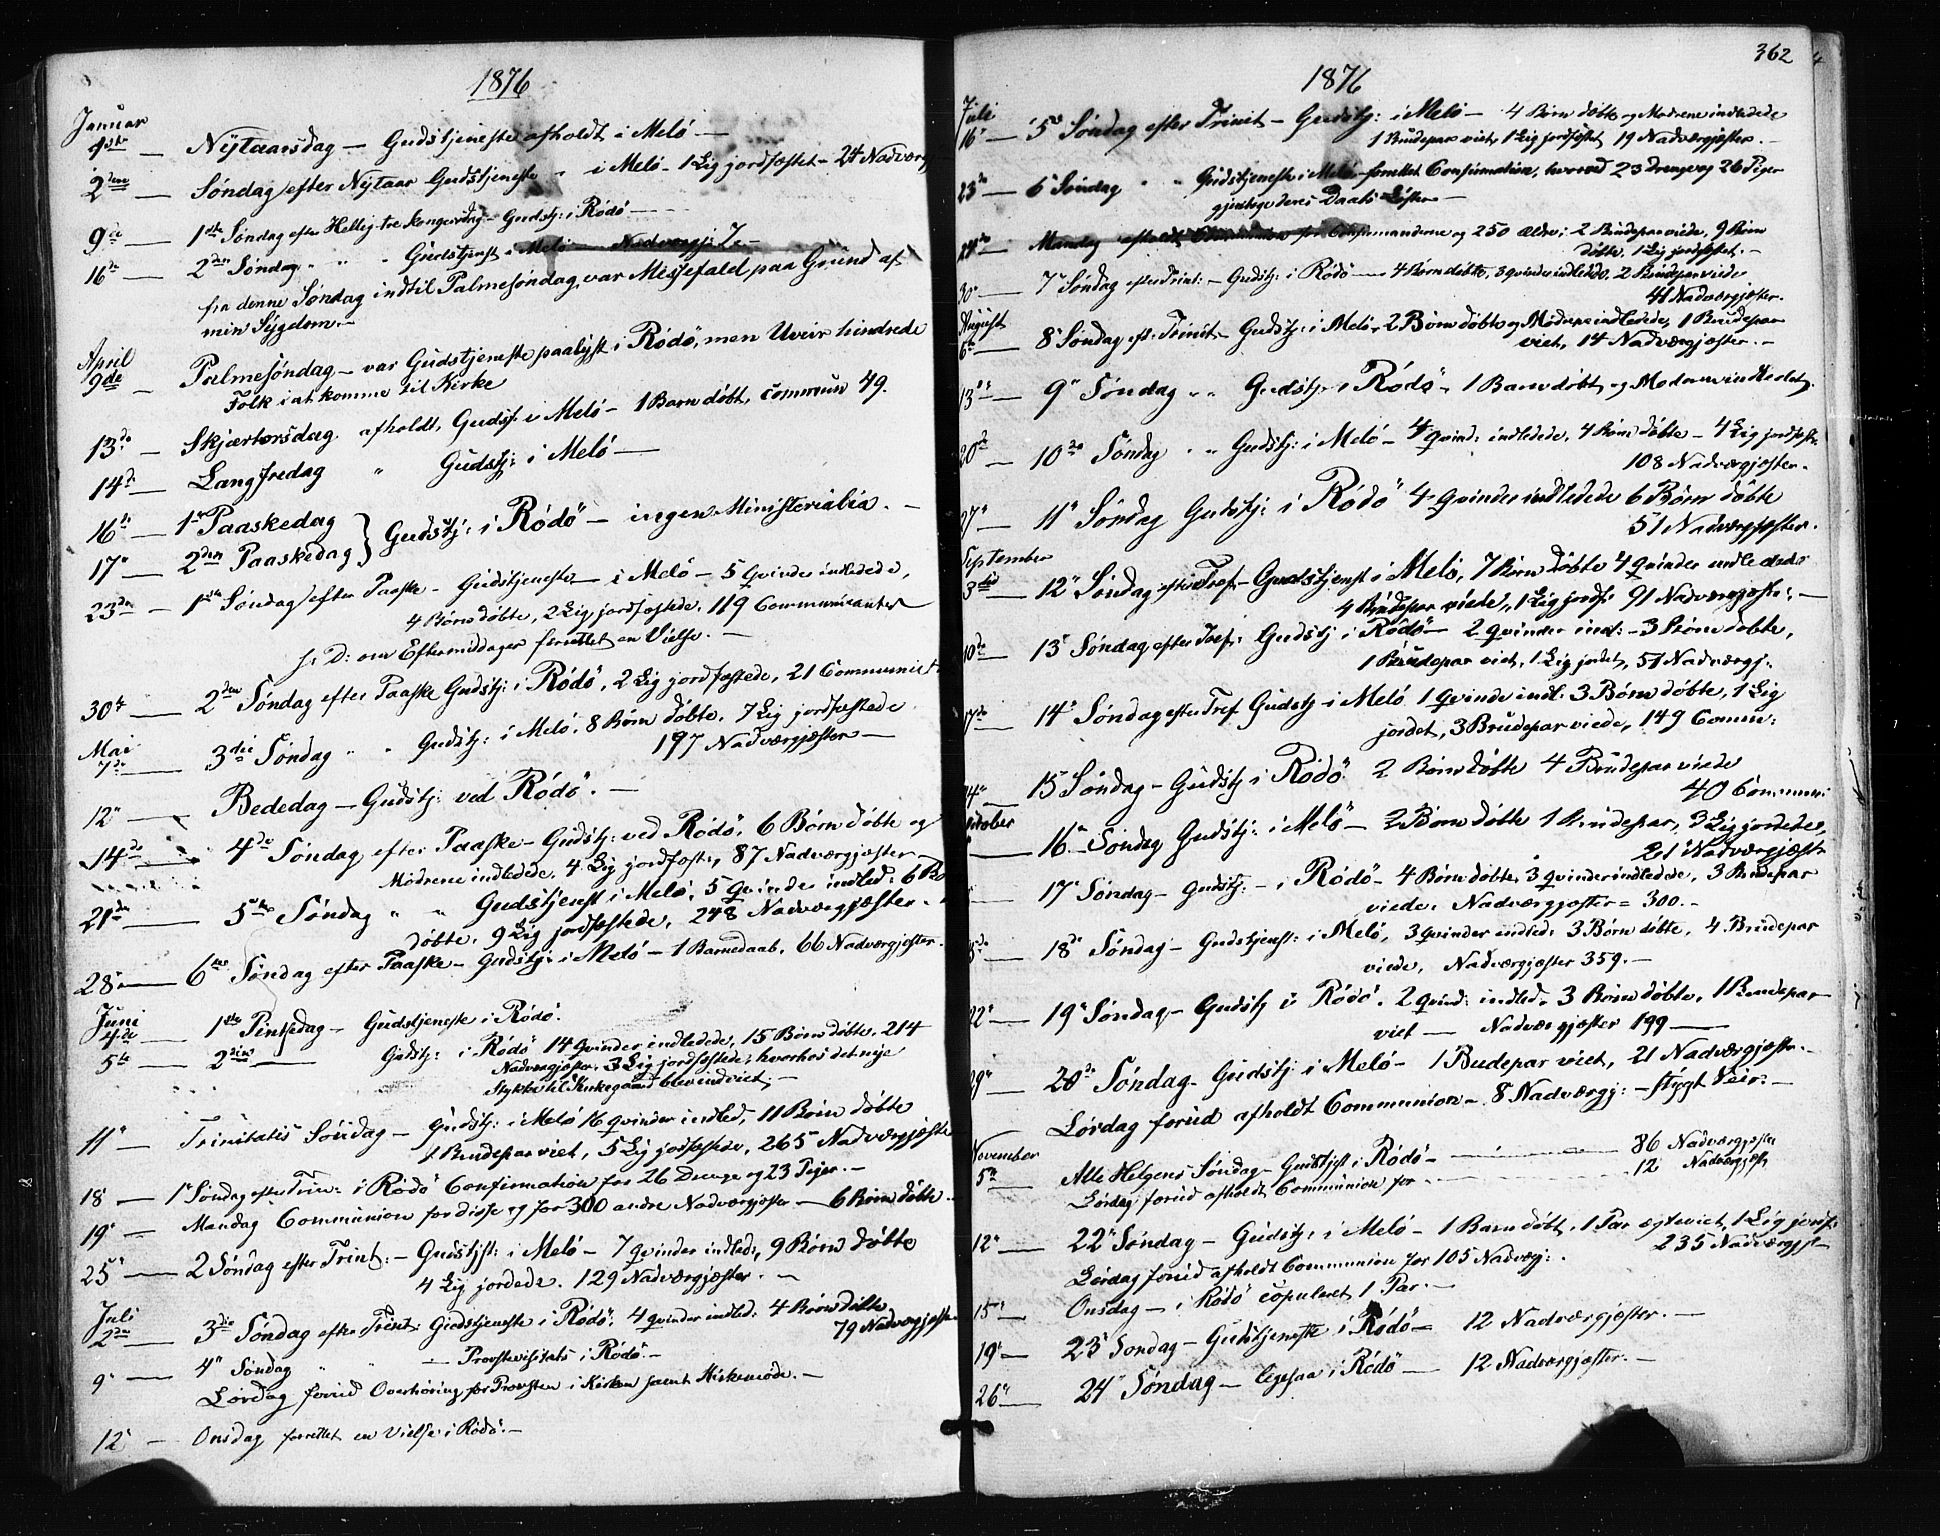 1876
Januar
1ste — Nÿtaarsdag — Gudstjeneste afholdt i Melö —
2den — Söndag efter Nÿtaar Gudstjeneste " i Melö - 1 Lig jordfæstet - 24 Nadverg
9de — 1ste Söndag efter Hellig tre Kongersdag - Gudstj: i Rödö —
16de — 2den Söndag " " " Gudstjenst i Melö — Nadvergj: 7 —
fra denne Söndag indtil Palmesöndag var Messefald paa Grund af
min Sÿgdom. —
April
9de — Palmesöndag — var Gudstjeneste paalÿst i Rödö, men Uveir hindrede
Folk i at komme til Kirke
13de — Skjærtorsdag afholdt, Gudstj: i Melö - 1 Barn döbt, commun 49.
14de — Langfredag " Gudstj: i Melö —
16de — 1ste Paaskedag } Gudstj: i Rödö — ingen Ministerialia. —
17" — 2den Paaskedag
23de — 1ste Söndag efter Paaske - Gudstjeneste — i Melö - 5 Qvinder indledede,
4 Börn döbte, 2 Lig jordfæstede, 119 Communicanter
s: D: om Eftermiddagen forrettet en Vielse. —
30te — 2den Söndag efter Paaske Gudstj: i Rödö, 2 Lig jordfæstede, 21 Communict
Mai
7de — 3die Söndag " " Gudstj: i Melö, 8 Börn döbte, 7 Lig jordfæstede
197 Nadvergjæster —
12" — Bededag — Gudstj: ved Rödö. —
14de — 4de Söndag efter Paaske - Gudstj: ved Rödö, 6 Börn döbte og
Mödrene indledede, 4 Lig jordfæst:, 87 Nadvergjæster —
21de — 5te Söndag " " Gudstjenst i Melö, 5 Qvinder indled: 6 Bö
döbte, 9 Lig jordfæstede, 248 Nadvergjæster.
28" — 6te Söndag efter Paaske - Gudstj: i Melö - 1 Barnedaab, 66 Nadvergjæster.
Juni
4de 1ste Pintsedag - Gudstjeneste i Rödö.
5te — 2den — Gudstj: i Rödö 14 Qvinder indledede, 15 Börn döbte, 214
Nadvergjæster, 3 Lig jordfæstede, hvorhos det nÿe
Stÿkke til Kirkegaard blev indviet. —
11" — Trinitatis Söndag - Gudstj: i Melö 16 Qvinder indled, 11 Börn döbte
1 Brudepar viet, 5 Lig jordfæstede, 265 Nadvergjæste
18 — 1" Söndag efter Trin: i Rödö Confirmation for 26 Drenge og 23 Piger. —
19" — Mandag Communion for disse og for 300 andre Nadvergjæster — 6 Börn döbte —
25" — 2 Söndag efter Trint: - Gudstjst: i Melö - 7 Qvinder indled:, 9 Börn döbte
4 Lig jordede. 129 Nadvergjæster. —
Juli
2den — 3die Söndag efter Trint: Gudstjeneste i Rödö, 4 Qvinder indled: 4 Börn döbte
79 Nadvergjæster
9" — 4" Söndag " " — Provstevisitats i Rödö. —
Lördag forud Overhöring for Provsten i Kirken samt Kirkemöde. —
12" — Onsdag forrettet en Vielse i Rödö. —
362
1876
Juli
16" — 5" Söndag efter Trinit - Gudstj: i Melö - 4 Börn döbte og Mödrene indledede
1 Brudepar viet, 1 Lig jordfæstet, 19 Nadvergjæster. —
23de — 6" Söndag " " Gudstjeneste i Melö - forrettet Confirmation, hvorved 23 Drenge og 26 Piger
gjentoge deres Daabs Löfter —
24de — Mandag afholdt Communion for Confirmanderne og 250 Ældre; 2 Brudepar viede, 9 Börn
döbte, 1 Lig jordfæstet. —
30" — 7" Söndag efter Trint: - Gudstj: i Rödö — 4 Börn döbte, 3 Qvinder indledede, 2 Brudepar viede
41 Nadvergjæster.
August
6te — 8" Söndag eft. Trinit - Gudstj: i Melö, 2 Börn döbte og Mödrene indledede, 1 Brudepar
viet, 14 Nadvergjæster. —
13de — 9" Söndag " " Gudstj: i Rödö - 1 Barn döbt, og Moderen indledet.
20de — 10de Söndag " " Gudstj: i Melö - 4 Qvind: indledede, 4 Börn döbte - 4 Lig jordfæst:
108 Nadvergjæster.
27" — 11" Söndag Gudstj: i Rödö 4 Qvinder indledede 6 Börn döbte
51 Nadvergjæster.
September
3die — 12" Söndag efter Tref - Gudstjenst i Melö, 7 Börn döbte 4 Qvinder indledede
4 Brudepar viede, 1 Lig jordf: 91 Nadvergjæste: —
10de — 13" Söndag efter Tref: Gudstj i Rödö — 2 Qvinder ind: - 3 Börn döbte,
1 Brudepar viet, 1 Lig jordet, 51 Nadvergj.
17de — 14" Söndag efter Tref Gudstj i Melö 1 Qvinde indl: 3 Börn döbte, 1 Lig
jordet, 3 Brudepar viede, 149 Comm:
24" — 15 Söndag - Gudstj i Rödö 2 Börn döbte 4 Brudepar viede
40 Commun:
October
— 16" Söndag Gudstj: i Melö — 2 Börn döbte 1 Brudepar, 3 Lig jordede,
21 Nadvergjæst
— 17" Söndag - Gudstj: - i Rödö - 4 Börn döbte, 3 Qvinder indledede, 3 Brudepar
viede. Nadvergjæster = 300. —
— 18de Söndag - Gudstjenst: i Melö, 3 Qvinder indled: 3 Börn döbte, 4 Brudepar
viede, Nadvergjæster 359. —
22" — 19" Söndag - Gudstj i Rödö, 2 Qvind: indled. 3 Börn döbte, 1 Brudepar
viet — Nadvergjæster 199 —
29" — 20de Söndag - Gudstj: i Melö - 1 Budepar viet, 21 Nadvergjæstr. —
Lördag forud afholdt Communion - 8 Nadvergj: - stÿgt Veir. —
November
5te — Alle Helgens Söndag - Gudstjst i Rödö — 86 Nadvergjæster
Lördag forud afholdt Communion for — 12 Nadvergjæst
12" — 22" Söndag - Gudstj: i Melö - 1 Barn döbt, 1 Par ægteviet, 1 Lig jordf:
235 Nadvergjst
Lördag forud afholdt Communion for 105 Nadverg:.
15" — Onsdag — i Rödö copuleret 1 Par. —
19" — 23" Söndag - Gudstjeneste i Rödö — 12 Nadvergjæster. —
26" — 24" Söndag — ligesaa i Rödö — 12 Nadvergjæster. —